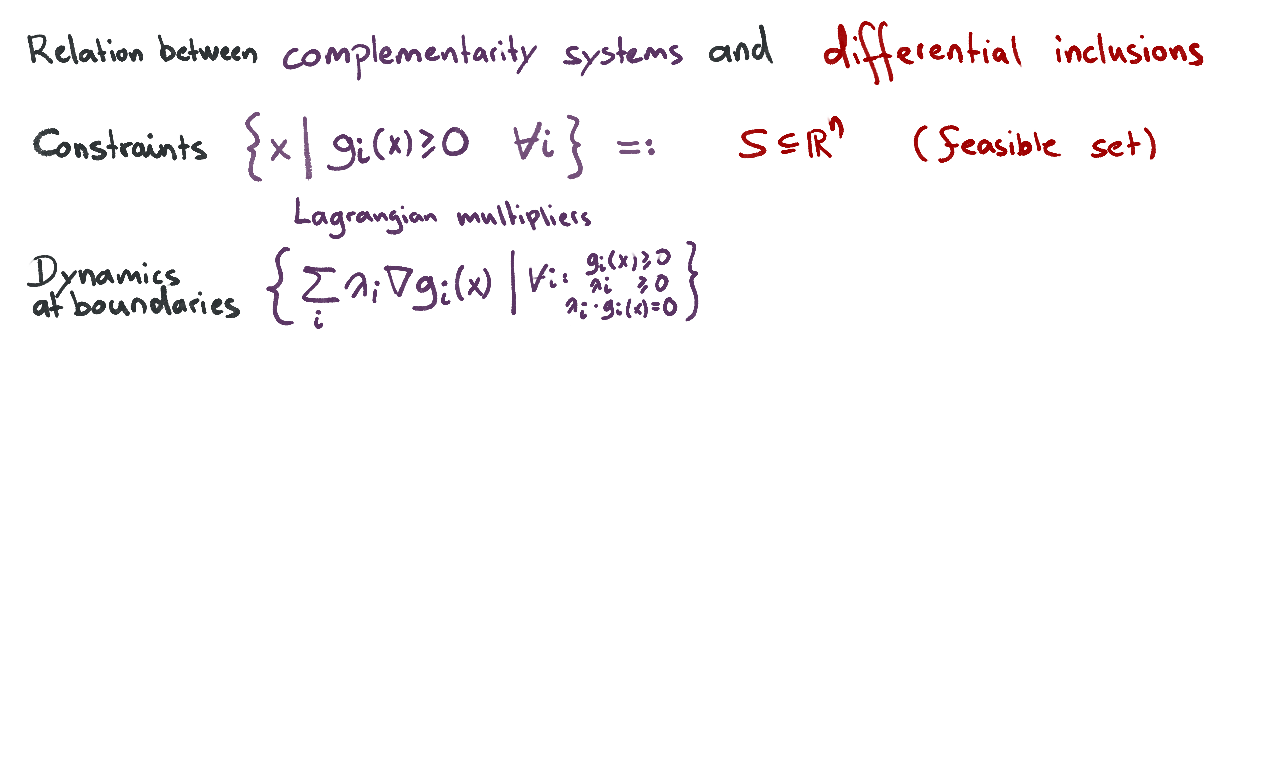 Relation between complementarity systems and differential inclusions
Constraints {x | gᵢ(x) ≥ 0 ∀i} =: S ⊆ ℝⁿ (feasible set)
Lagrangian multipliers
Dynamics at boundaries { ∑ᵢ λᵢ ∇gᵢ(x) | ∀i: gᵢ(x) ≥ 0 λᵢ ≥ 0 λᵢ · gᵢ(x) = 0 }